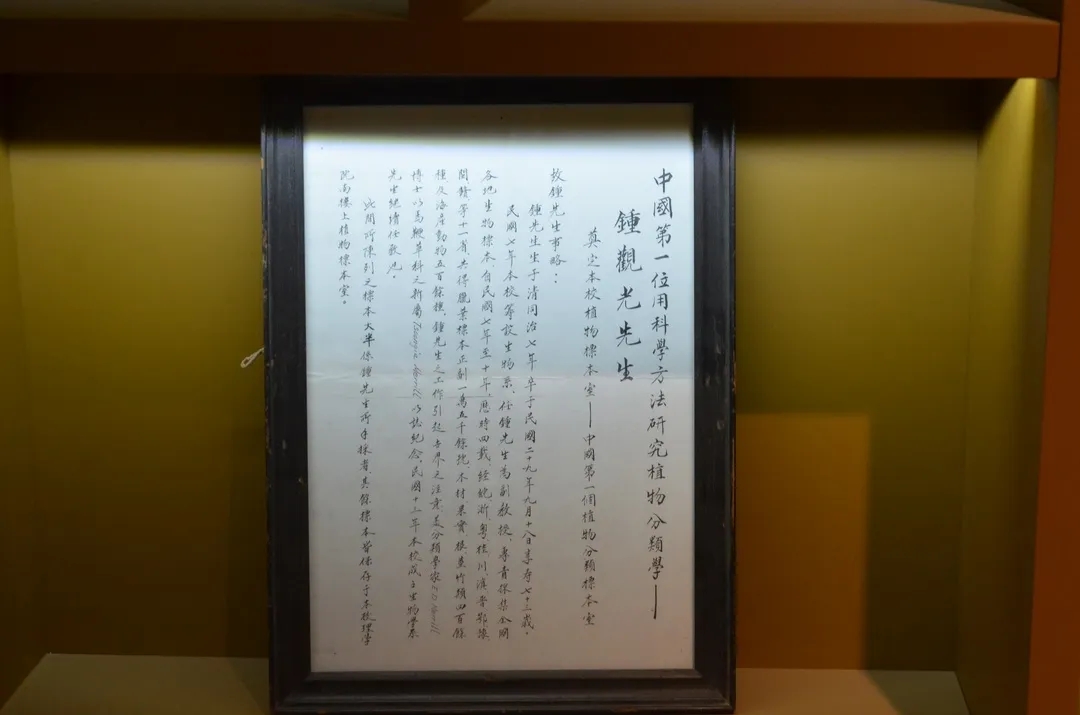 中國第一位用科學方法研究植物分類學——
鍾觀光先生
奠定本校植物標本室——中國第一個植物分類標本室
故鍾先生事略：
鍾先生生于清同治七年卒于民國二十九年九月十八日享壽七十三歲。
民國七年本校籌設生物系，任鍾先生為副教授，專責採集全國
各地生物標本，自民國七年至十年，歷時四載，經皖浙粵桂川滇晋鄂豫
閩贛等十一省，共得臘葉標本正副一萬五千餘號，木材，果實，根，莖竹類四百餘
種及海產動物五百餘種，鍾先生之工作引起世界之注意，美分類學家E.D. Merrill
博士以馬鞭草科之新屬Tsoongia Merrill以誌紀念，民國十三年本校成立生物學系
先生繼續任教焉。
此間所陳列之標本大半係鍾先生所手採者，其餘標本皆保存于本校理學
院南樓上植物標本室。